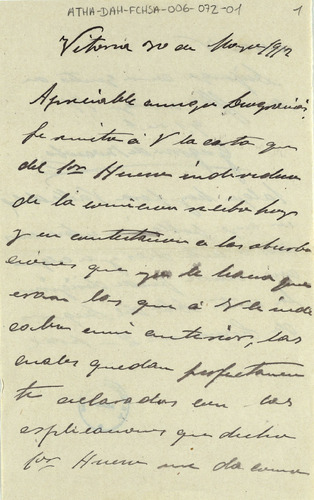 ATHA-DAH-FCHSA-006-072-01
1
Vitoria 30 de Mayo 1912
Apreciable amigo Deogracias,
remito á V la carta que
del Sor Hueso individuo
de la comision recibo hoy
y en contestacion a las observa
ciones que yo le hacia que
eran las que á V le indi
caba en mi anterior, las
cuales quedan perfectamen
te aclaradas con las
esplicaciones que dicho
Sor Hueso me da como